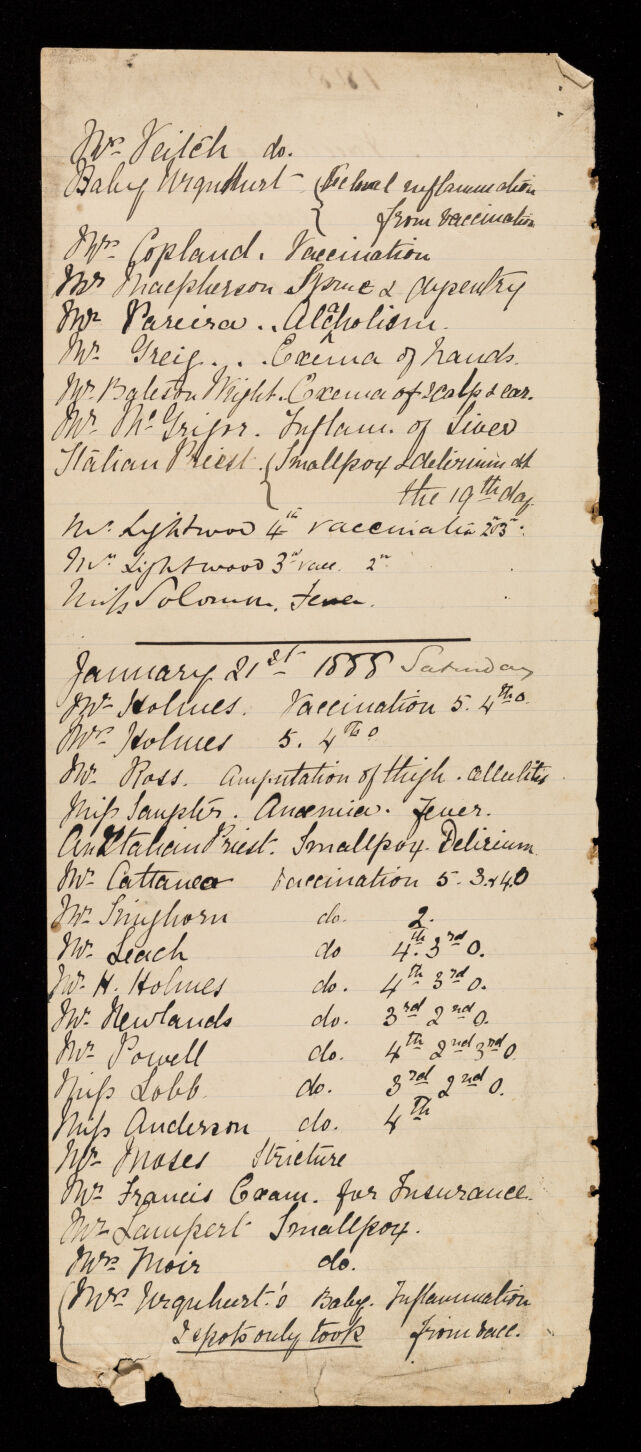 Mr. Veitch do.
Baby Urquhurt inflammation
from vaccination
Mrs. Copland. Vaccination
Mr Macpherson Sprue & dysentry
Mr Pareira .. Alcoholism.
Mr. Greig . . . Exema of hands.
Mr. Wright. Exema of scalp & ear.
Mr. McGrigor. Inflam. of Liver
Italian Priest. Smallpox & delirium at
the 19th day
Mr. Lightwood 4th vaccination
Mrs Lightwood 3rd vacc.
Miss Solomon. Fever.
January 21st 1888 Saturday
Mr. Holmes. Vaccination 5. 4th 0.
Mrs. Holmes 5. 4th 0
Mr. Ross. Amputation of thigh. cellulitis
Miss Anæmia. Fever.
An Italian Priest. Smallpox. Delirium
Mr. Cattanea Vaccination 5. 3. & 4. 0
Mr. Singhorn do. 2.
Mr. Leach do 4th. 3rd 0.
Mr. H. Holmes do. 4th 3rd 0.
Mr. Newlands do. 3rd 2nd 0.
Mr. Powell do. 4th 2nd 3rd 0
Miss Lobb do. 3rd 2nd 0.
Miss Anderson do. 4th
Mr. Moses Stricture
Mr. Francis Exam. for Insurance.
Mr. Lampert Smallpox.
Mrs Moir do.
Mrs Urquhurt's Baby. Inflammation
2 spots only took from vacc.